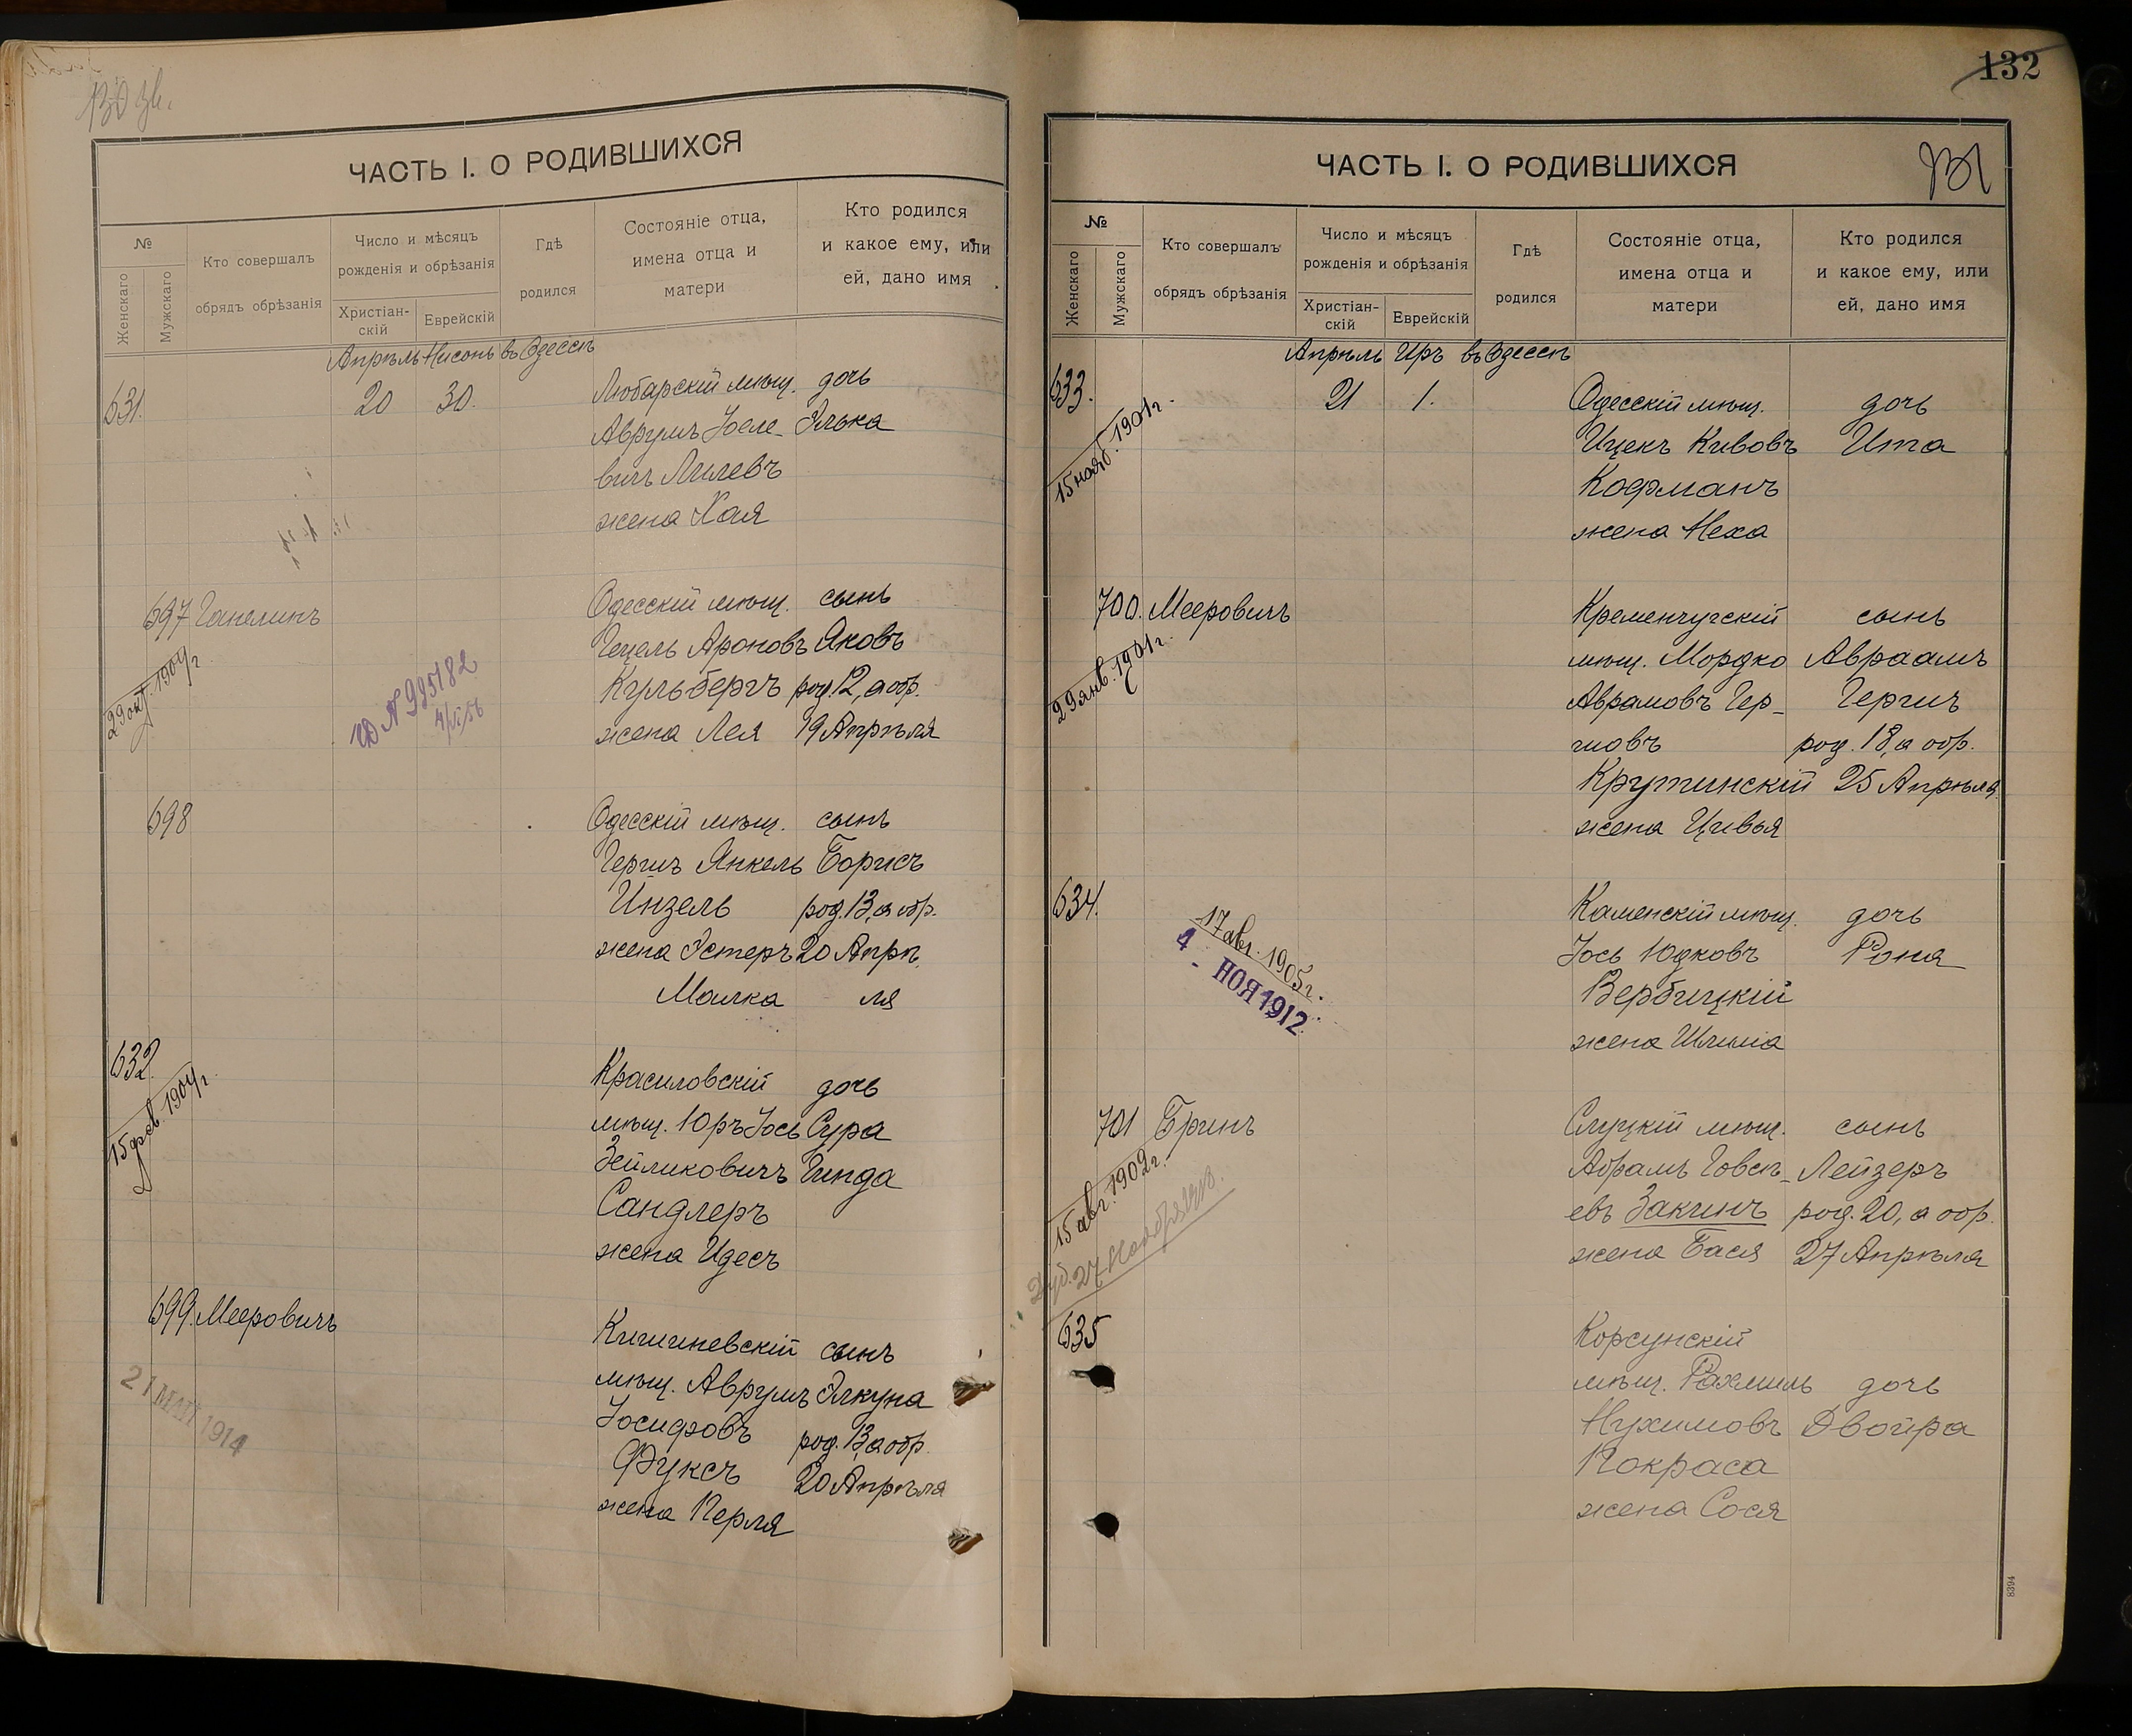 130 зв.
ЧАСТЬ I. О РОДИВШИХСЯ
№
Женскаго
Мужскаго
Кто совершалъ
обрядъ обрѣзанія
Число и мѣсяцъ
рожденія и обрѣзанія
Христіан-
скій
Еврейскій
Гдѣ
родился
Состояніе отца,
имена отца и
матери
Кто родился
и какое ему, или
ей, дано имя
Апрѣль Нисонъ въ Одессѣ
631. 20 30. Любарскій мѣщ. дочь
Аврумъ Іосе- Элька
вичъ
жена Хая
697 Ганелинъ Одесскій мѣщ. сынъ
Гецель Ароновъ Яковъ
Кульбергъ род. 12, а обр.
жена Лея 19 Апрѣля
29 окт. 1904 г.
698 Одесскій мѣщ. сынъ
Гершъ Янкель Борисъ
Инзель род. 13, а обр.
жена Эстеръ 20 Апрѣ
Малка ля
632. Красиловскій дочь
мѣщ. Юръ Іось Сура
Зейликовичъ Гинда
Сандлеръ
жена Идесъ
15 фев. 1904 г.
699. Мееровичъ Кишиневскій сынъ
мѣщ. Аврумъ Элкуна
Іосифовъ род. 13, а обр.
Фуксъ 20 Апрѣля
жена Перля
21 МАЯ 1914
132
131
ЧАСТЬ I. О РОДИВШИХСЯ
№
Женскаго
Мужскаго
Кто совершалъ
обрядъ обрѣзанія
Число и мѣсяцъ
рожденія и обрѣзанія
Христіан-
скій
Еврейскій
Гдѣ
родился
Состояніе отца,
имена отца и
матери
Кто родился
и какое ему, или
ей, дано имя
Апрѣль Иръ въ Одессѣ
633. 21 1. Одесскій мѣщ. дочь
Ицекъ Кивовъ Ита
Кофманъ
жена Неха
15 нояб. 1901 г.
700. Мееровичъ Кременчугскій сынъ
мѣщ. Мордко Авраамъ
Аврамовъ Гер- Гершъ
шовъ род. 18, а обр.
Крупинскій 25 Апрѣля
жена Цивья
29 янв. 1901 г.
634. Каменскій мѣщ. дочь
Іось Юдковъ Роня
Вербицкій
жена Шлима
17 авг. 1905 г.
4 - НОЯ 1912
701 Бринъ Слуцкій мѣщ. сынъ
Абрамъ Говсѣ- Лейзеръ
евъ Закгинъ род. 20, а обр.
жена Бася 27 Апрѣля
15 авг. 1902 г.
635 Корсунскій
мѣщ. Рахмиль дочь
Нухимовъ Двойра
Покраса
жена Сося
8394